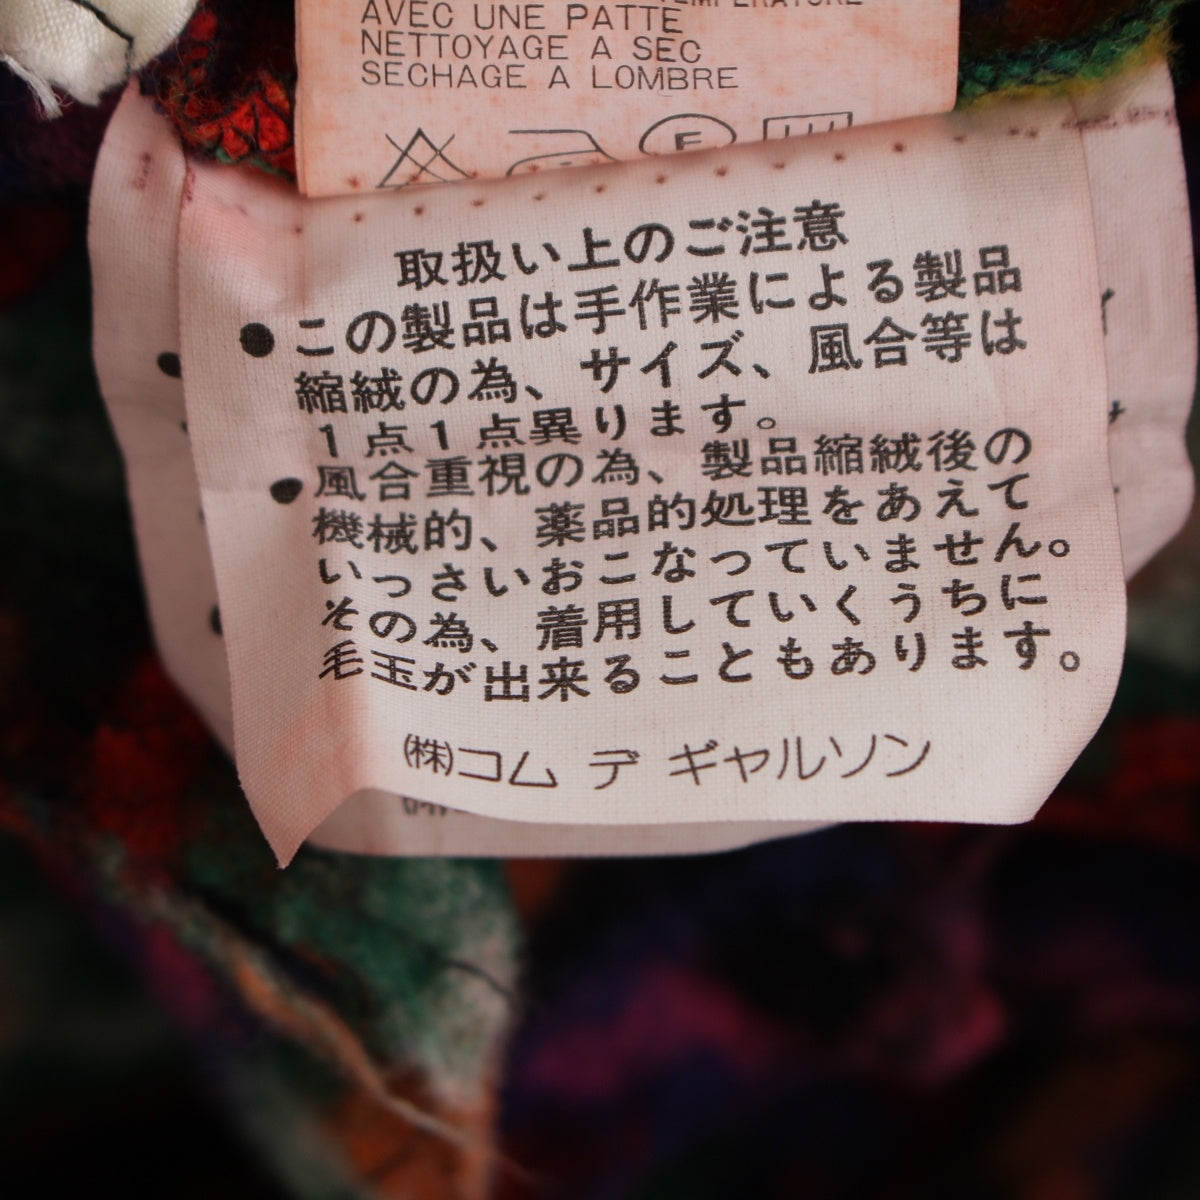 AVEC UNE PATTE
NETTOYAGE A SEC
SECHAGE A LOMBRE
取扱い上のご注意
●この製品は手作業による製品
縮絨の為、サイズ、風合等は
1点1点異ります。
●風合重視の為、製品縮絨後の
機械的、薬品的処理をあえて
いっさいおこなっていません。
その為、着用していくうちに
毛玉が出来ることもあります。
㈱コム デ ギャルソン